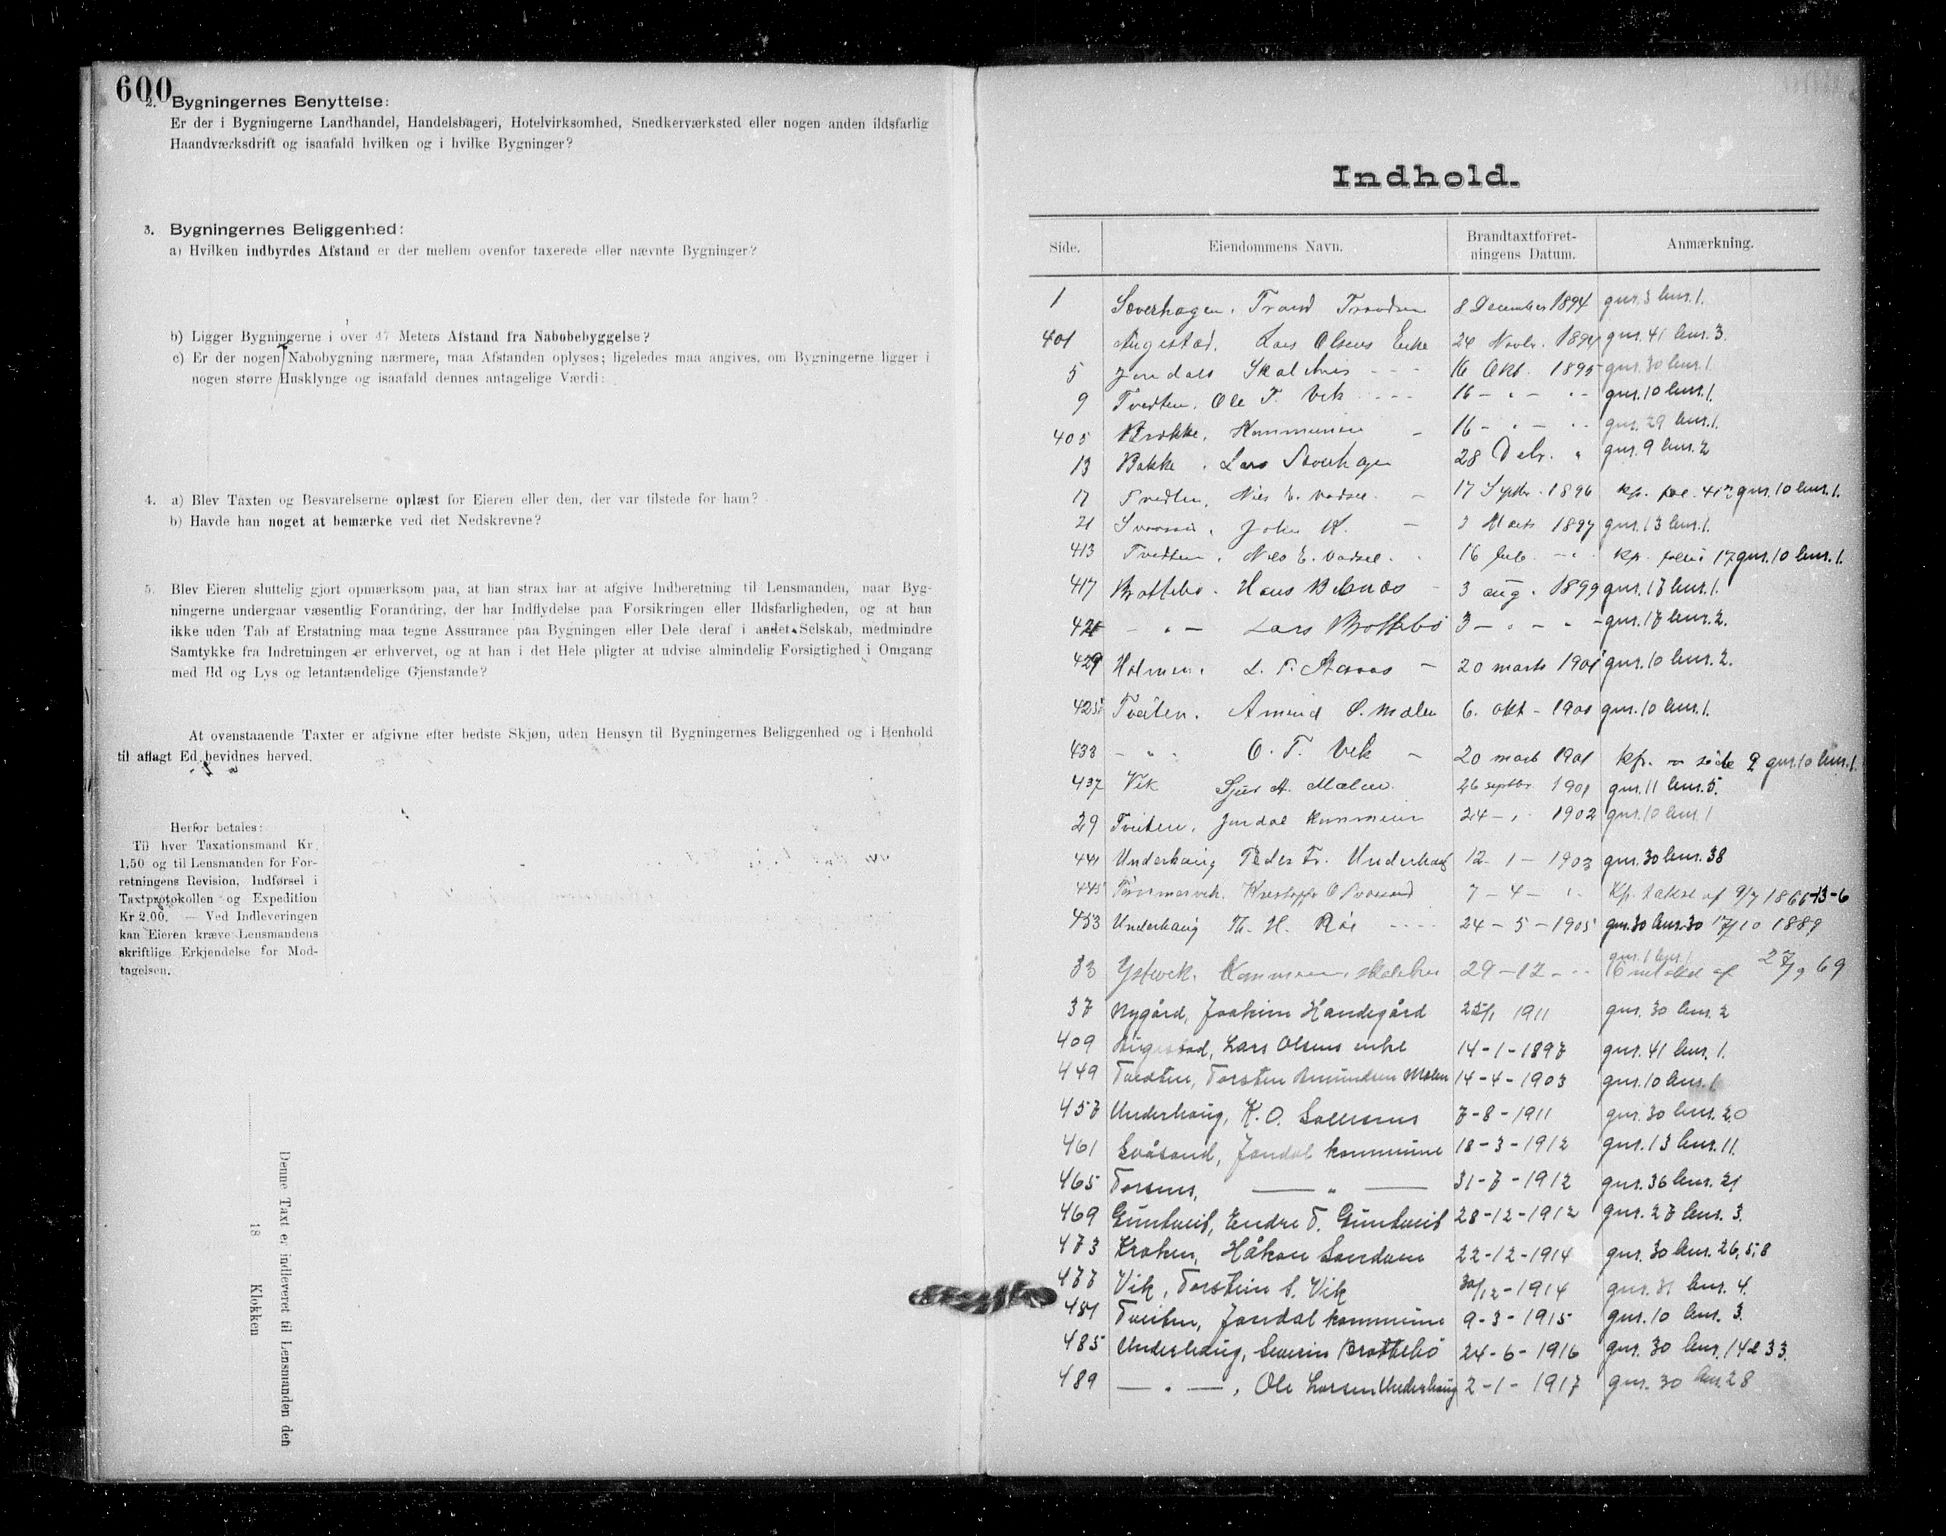 600
2. Bygningernes Benyttelse:
Er der i Bygningerne Landhandel, Handelsbageri, Hotelvirksomhed, Snedkerværksted eller nogen anden ildsfarlig
Haandværksdrift og isaafald hvilken og i hvilke Bygninger?
3. Bygningernes Beliggenhed:
a) Hvilken indbyrdes Afstand er der mellem ovenfor taxerede eller nævnte Bygninger?
b) Ligger Bygningerne i over 47 Meters Afstand fra Nabobebyggelse?
c) Er der nogen Nabobygning nærmere, maa Afstanden oplyses; ligeledes maa angives, om Bygningerne ligger i
nogen større Husklynge og isaafald dennes antagelige Værdi:
4. a) Blev Taxten og Besvarelserne oplæst for Eieren eller den, der var tilstede for ham?
b) Havde han noget at bemærke ved det Nedskrevne?
5. Blev Eieren sluttelig gjort opmærksom paa, at han strax har at afgive Indberetning til Lensmanden, naar Byg-
ningerne undergaar væsentlig Forandring, der har Indflydelse paa Forsikringen eller Ildsfarligheden, og at han
ikke uden Tab af Erstatning maa tegne Assurance paa Bygningen eller Dele deraf i andet Selskab, medmindre
Samtykke fra Indretningen er erhvervet, og at han i det Hele pligter at udvise almindelig Forsigtighed i Omgang
med Ild og Lys og letantændelige Gjenstande?
At ovenstaaende Taxter er afgivne efter bedste Skjøn, uden Hensyn til Bygningernes Beliggenhed og i Henhold
til aflagt Ed bevidnes herved.
Herfor betales:
Til hver Taxationsmand Kr.
1,50 og til Lensmanden for For-
retningens Revision, Indførsel i
Taxtprotokollen og Expedition
Kr 2,00. — Ved Indleveringen
kan Eieren kræve Lensmandens
skriftlige Erkjendelse for Mod-
tagelsen.
Denne Taxt er indleveret til Lensmanden den
18 Klokken
Indhold.
Side. Eiendommens Navn. Brandtaxtforret-ningens Datum. Anmærkning.
1 Sæverhagen. Trond Trondsen 8 December 1894 gnr. 3 bnr. 1.
401 Augestad. Lars Olsens Enke 24 Novbr. 1894 gnr. 41 bnr. 3.
5 Jondals Skolehus - - - 16 Okt. 1895 gnr. 30 bnr. 1.
9 Tvedten. Ole T. Vik - - - 16 - " - " gnr. 10 bnr. 1.
405 Brække. Kommunen - 16 - " - " gnr. 29 bnr. 1.
13 Bakke. Lars Sæverhagen 28 Debr. " gnr. 9 bnr. 2
17 Tvedten. Nils E. - 17 Septbr. 1896 kfr. fol. 413 gnr. 10 bnr. 1.
21 John H. - 3 Marts 1897 gnr. 13 bnr. 1.
413 Tvedten. Nils E. 16 feb. - " kfr. folio 17 gnr. 10 bnr. 1.
417 Brottebø. Hans Belnæs - 3 aug. 1899 gnr. 17 bnr. 1.
421 - " - Lars Brottebø 3 - " - " - gnr. 17 bnr. 2.
429 Holmen. L. T. Aasaas - 20 marts 1901 gnr. 10 bnr. 2.
425 Tveiten. Amund O. Molen 6. okt - 1901 gnr. 10 bnr. 1.
433 - " - O. T. Vik - 20 marts 1901 kfr. side 9 gnr. 10 bnr. 1.
437 Vik Sjur A. Molen 26 septbr 1901 gnr. 11 bnr. 5.
29 Tveiten. Jondal kommune 24 - " 1902 gnr. 10 bnr. 1
441 Underhaug Peder Fr. Underhaug 12 - 1 - 1903 gnr. 30 bnr. 38
445 O Svaasand 7 - 4 - " Kfr. takst af 9/7 1866-13-6
453 Underhaug Th. H. Røs - - - - 24 - 5 - 1905 gnr. 30 bnr. 30 17/10 1889
33 Ystevik. Kommunen skolehus 29 - 12 - " gnr. 1 bnr. 1 af 27/9 69
37 Nygård, Joakim Handegård 25/1 1911 gnr. 30 bnr. 2
409 Augestad, Lars Olsens enke 14-1-1897 gnr. 41 bnr. 1.
449 Tveiten, Torsten Amundsen Molen 14-4-1903 gnr. 10 bnr. 1
457 Underhaug, K. O. 7-8-1911 gnr. 30 bnr. 20
461 Svåsand, Jondal kommune 18-3-1912 gnr. 13 bnr. 11.
465 Torsnes, — " — 31-7-1912 gnr. 36 bnr. 21
469 Guntveit, Endre T. Guntveit 28-12-1912 gnr. 27 bnr. 3.
473 Kroken, Håkon Sandven 22-12-1914 gnr. 30 bnr. 26, 58
477 Vik, Torstein S. Vik 30/12-1914 gnr. 31 bnr. 4.
481 Tveiten, Jondal kommune 9-3-1915 gnr. 10 bnr. 3.
485 Underhaug, Severin Brottebø 24-6-1916 gnr. 30 bnr. 14 & 33.
489 — " —, Ole Larsen Underhaug 2-1-1917 gnr. 30 bnr. 28